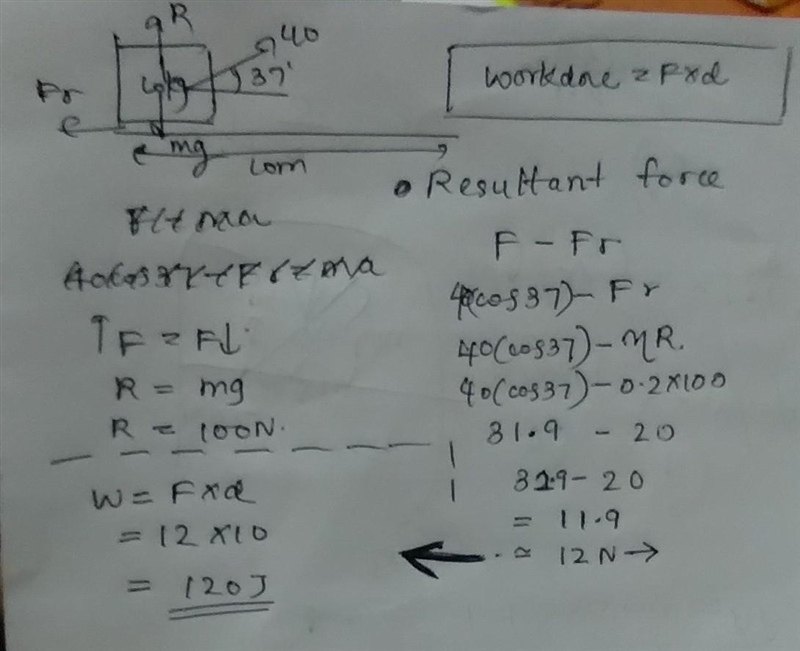 R
40
37°
Fr
mg
10m
workdone = F×d
F = ma
↑F = F↓
R = mg
R = 100N.
W = F×d
= 12 ×10
= 120J
• Resultant force
F - Fr
40(cos37) - Fr
40(cos37) - ηR.
40(cos37) - 0.2×100
31.9 - 20
31.9 - 20
= 11.9
≃ 12N→